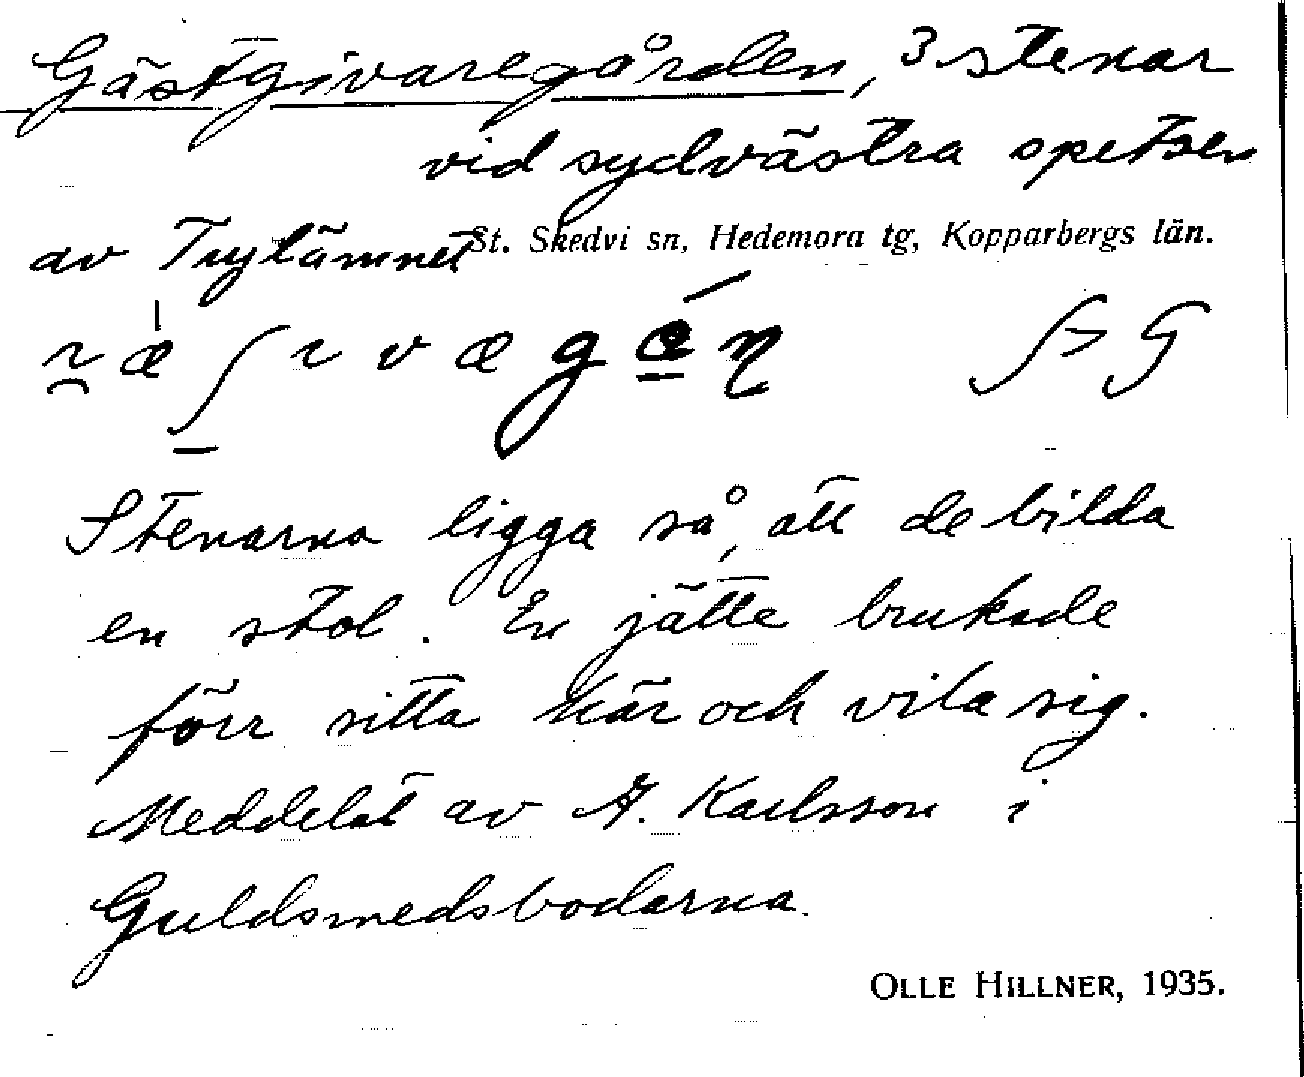 Gästgivaregården, 3 stenar
vid sydvästra spetsen
av Trytämnet
St. Skedvi sn, Hedemora tg, Kopparbergs län.
Stenarna ligga så, att de bilda
en stol. En jätte brukade
förr sitta här och vila sig.
Meddelat av A. Karlsson i
Guldsmedsbodarna.
OLLE HILLNER, 1935.